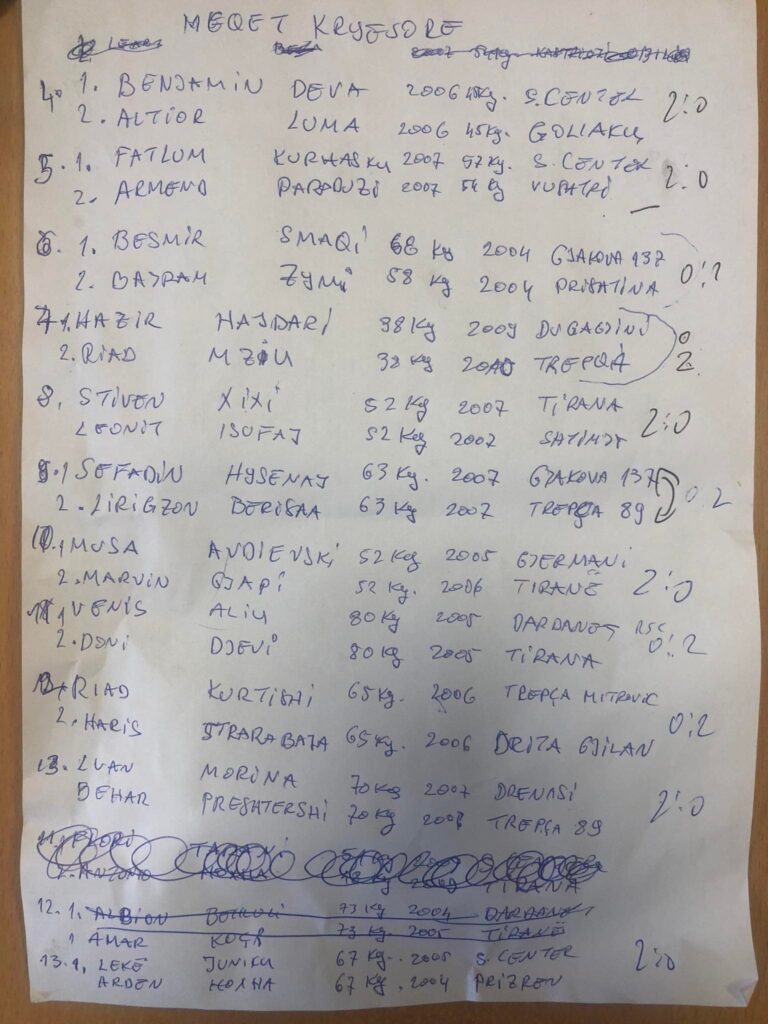 MEQET KRYESORE
4. 1. BENJAMIN DEVA 2006 45kg. S.CENTER 2:0
2. ALTIOR LUMA 2006 45kg. GOLLAKU
5. 1. FATLUM 2007 S.CENTER 2:0
2. ARMEND 2007 54kg
6. 1. BESMIR SMAQI 68 kg 2004 GJAKOVA 137
2. BAJRAM ZYMI 58 kg 2004 PRISHTINA 0:2
7. 1. HAZIR HAJDARI 38Kg 2009 DUGAGJINI 0
2. RIAD 38kg TREPÇA 2
8. STIVEN XIXI 52Kg 2007 TIRANA 2:0
LEONIT ISUFAJ 52Kg 2007
9. 1 SEFADIN HYSENAJ 63Kg. 2007 GJAKOVA 137
2. LIRIGZON BERISHA 63Kg 2007 TREPÇA 89 0:2
10. 1 MUSA AVDIEVSKI 52Kg 2005 GJERMANI
2. MARVIN GJAPI 52Kg. 2006 TIRANË 2:0
11. 1 VENIS ALIU 80Kg 2005 DARDANET RSC
2. DONI DJEVI 80Kg 2005 TIRANA 0:2
RIAD KURTISHI 65Kg. 2006 TREPÇA MITROVIC
2. HARIS STRARABAJA 65Kg. 2006 DRITA GJILAN 0:2
13. LUAN MORINA 70Kg 2007 DRENASI
BEHAR PRESHTERSHI 70Kg TREPÇA 89 2:0
TIRANA
12. 1. ALBION 73Kg 2004
1 AMAR KOÇA 73Kg 2005 TIRANË
13. 1, LEKË JUNIKU 67Kg. 2005 S.CENTER 2:0
ARDEN HOXHA 67Kg. 2004 PRIZREN